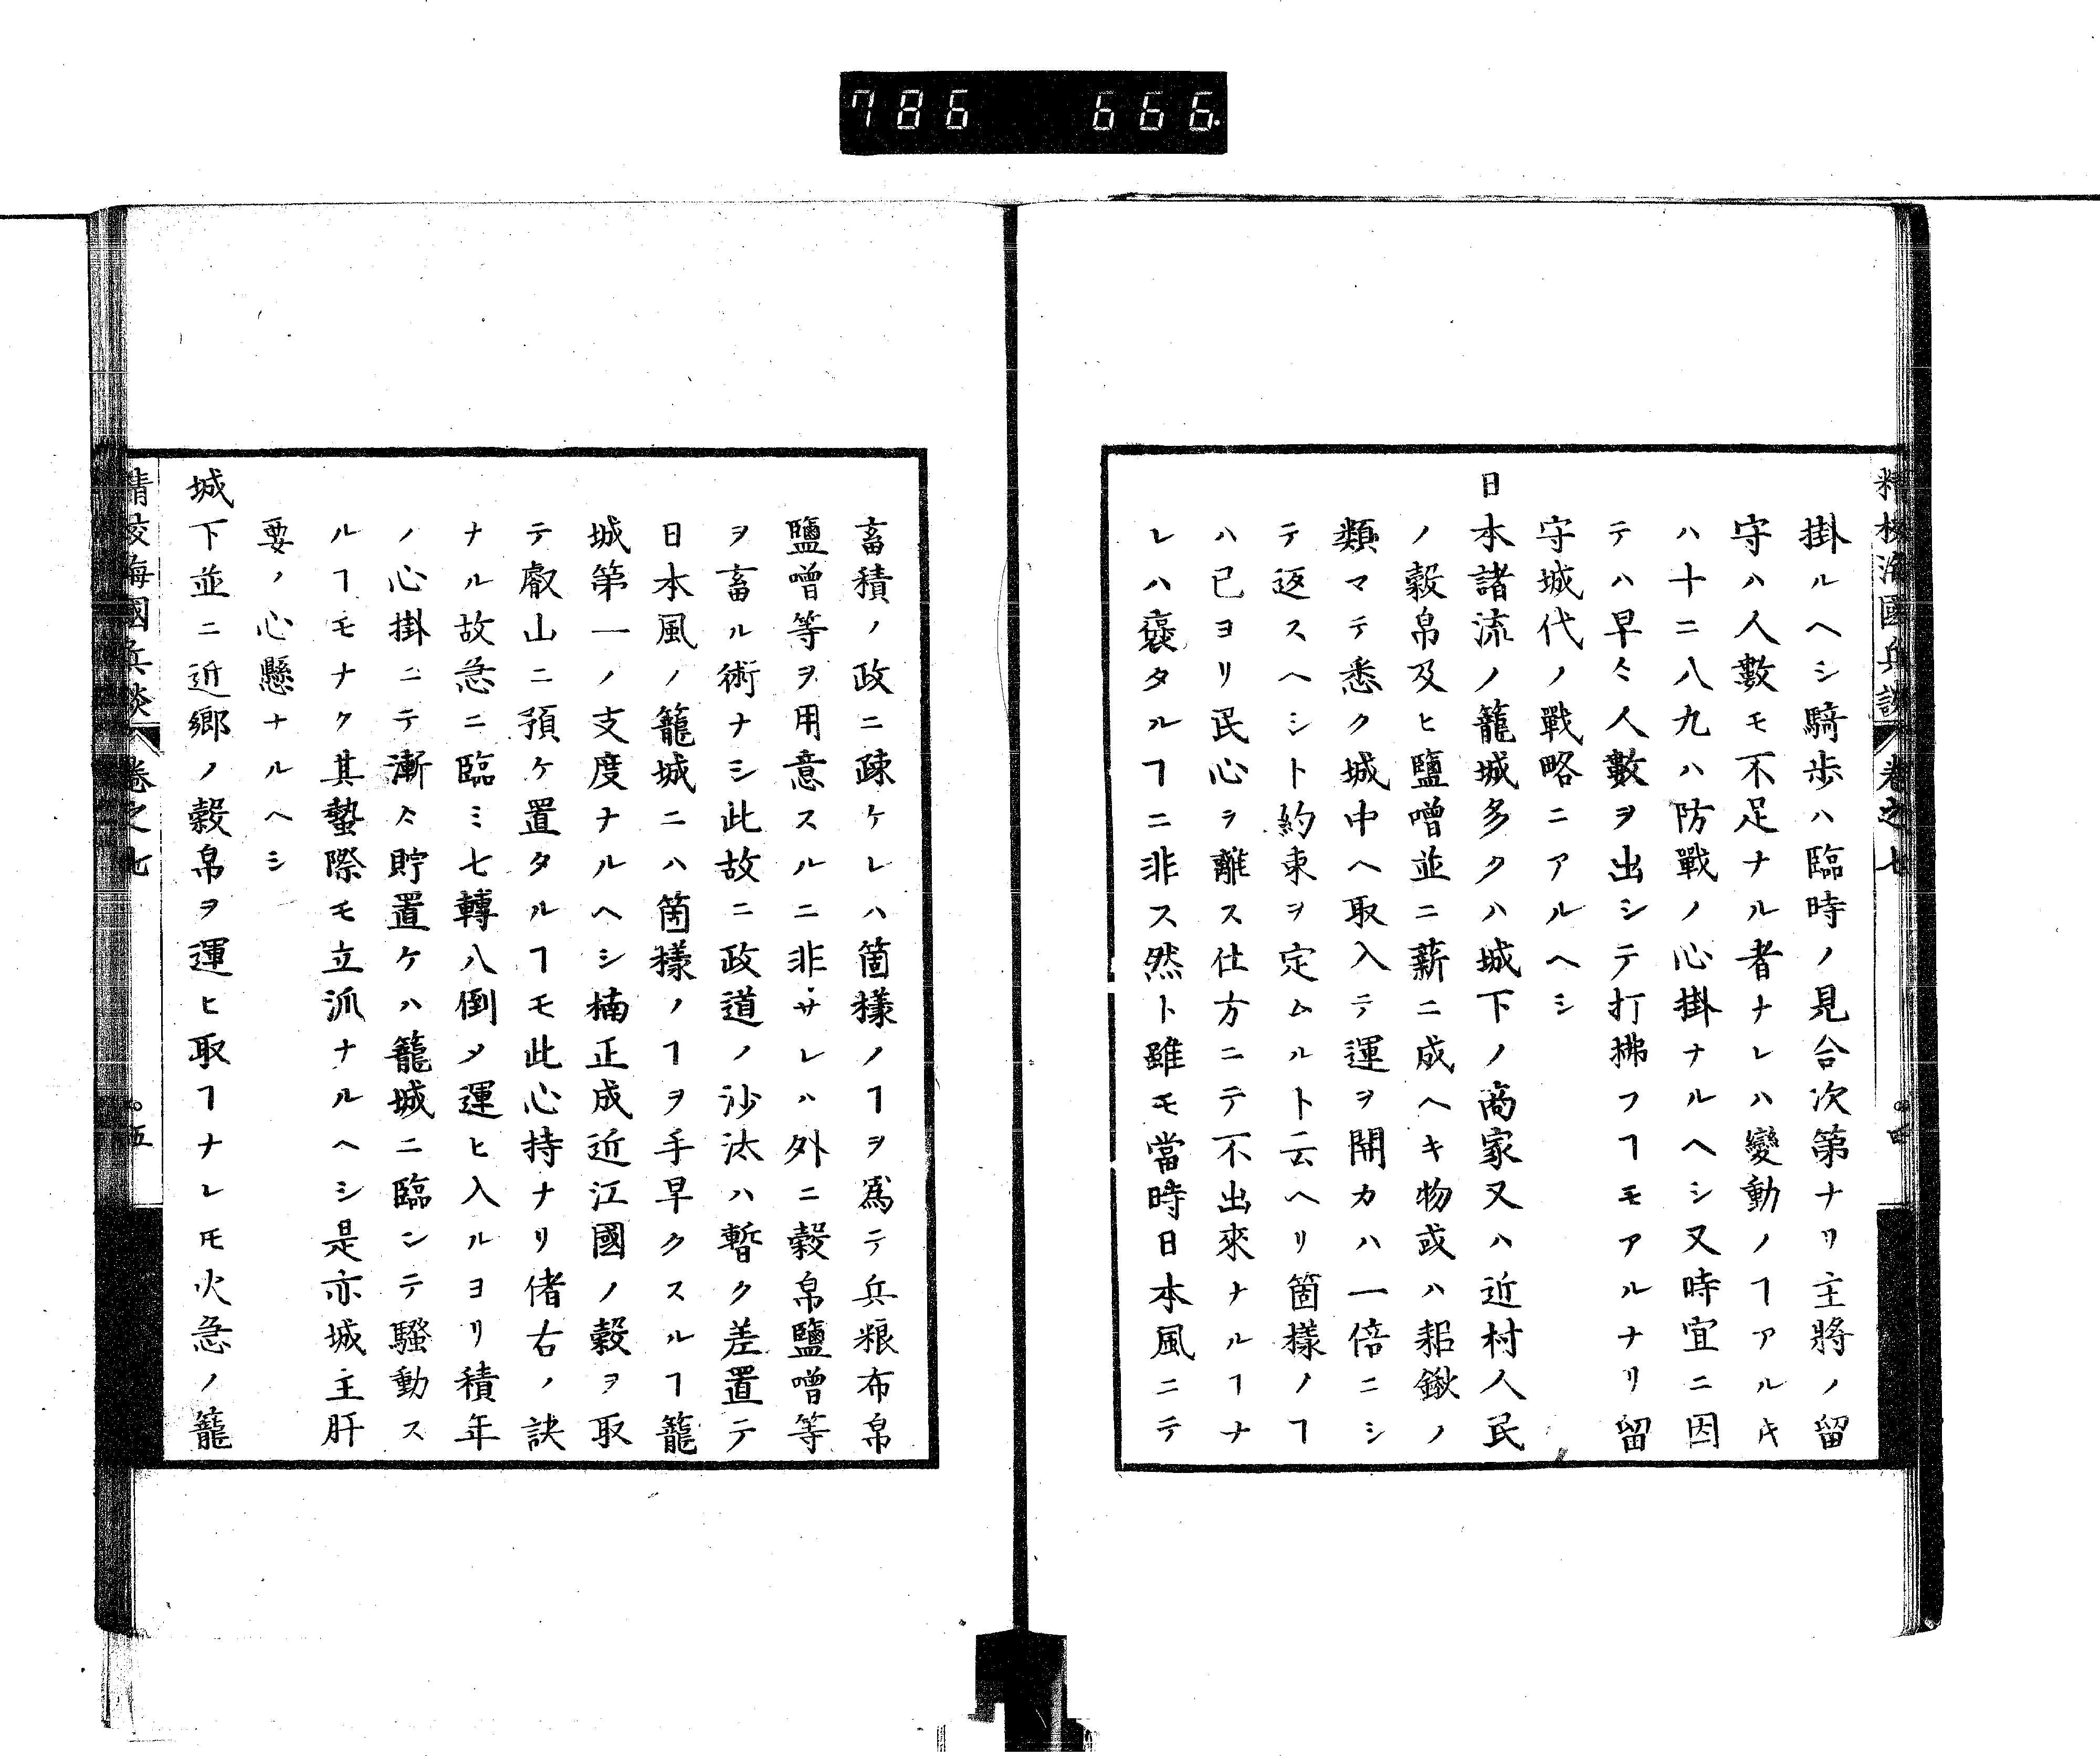 786 666.
精校海國兵談 卷之七 ○四
掛ルヘシ騎歩ハ臨時ノ見合次第ナリ主將ノ留
守ハ人數モ不足ナル者ナレハ變動ノヿアルキ
ハ十ニ八九ハ防戰ノ心掛ナルヘシ又時宜ニ因
テハ早々人數ヲ出シテ打拂フヿモアルナリ留
守城代ノ戰略ニアルヘシ
日本諸流ノ籠城多クハ城下ノ商家又ハ近村人民
ノ穀帛及ヒ鹽噌並ニ薪ニ成ヘキ物或ハ耜鍬ノ
類マテ悉ク城中ヘ取入テ運ヲ開カハ一倍ニシ
テ返スヘシト約束ヲ定ムルト云ヘリ箇樣ノヿ
ハ已ヨリ民心ヲ離ス仕方ニテ不出來ナルヿナ
レハ褒タルヿニ非ス然ト雖モ當時日本風ニテ
畜積ノ政ニ疎ケレハ箇樣ノヿヲ爲テ兵粮布帛
鹽噌等ヲ用意スルニ非サレハ外ニ穀帛鹽噌等
ヲ畜ル術ナシ此故ニ政道ノ沙汰ハ暫ク差置テ
日本風ノ籠城ニハ箇樣ノヿヲ手早クスルヿ籠
城第一ノ支度ナルヘシ楠正成近江國ノ穀ヲ取
テ叡山ニ預ケ置タルヿモ此心持ナリ偖右ノ訣
ナル故急ニ臨ミ七轉八倒メ運ヒ入ルヨリ積年
ノ心掛ニテ漸々貯置ケハ籠城ニ臨ンテ騷動ス
ルヿモナク其蟄際モ立派ナルヘシ是亦城主肝
要ノ心懸ナルヘシ
城下並ニ近鄉ノ穀帛ヲ運ヒ取ヿナレモ火急ノ籠
精校海國兵談 卷之七 ○五